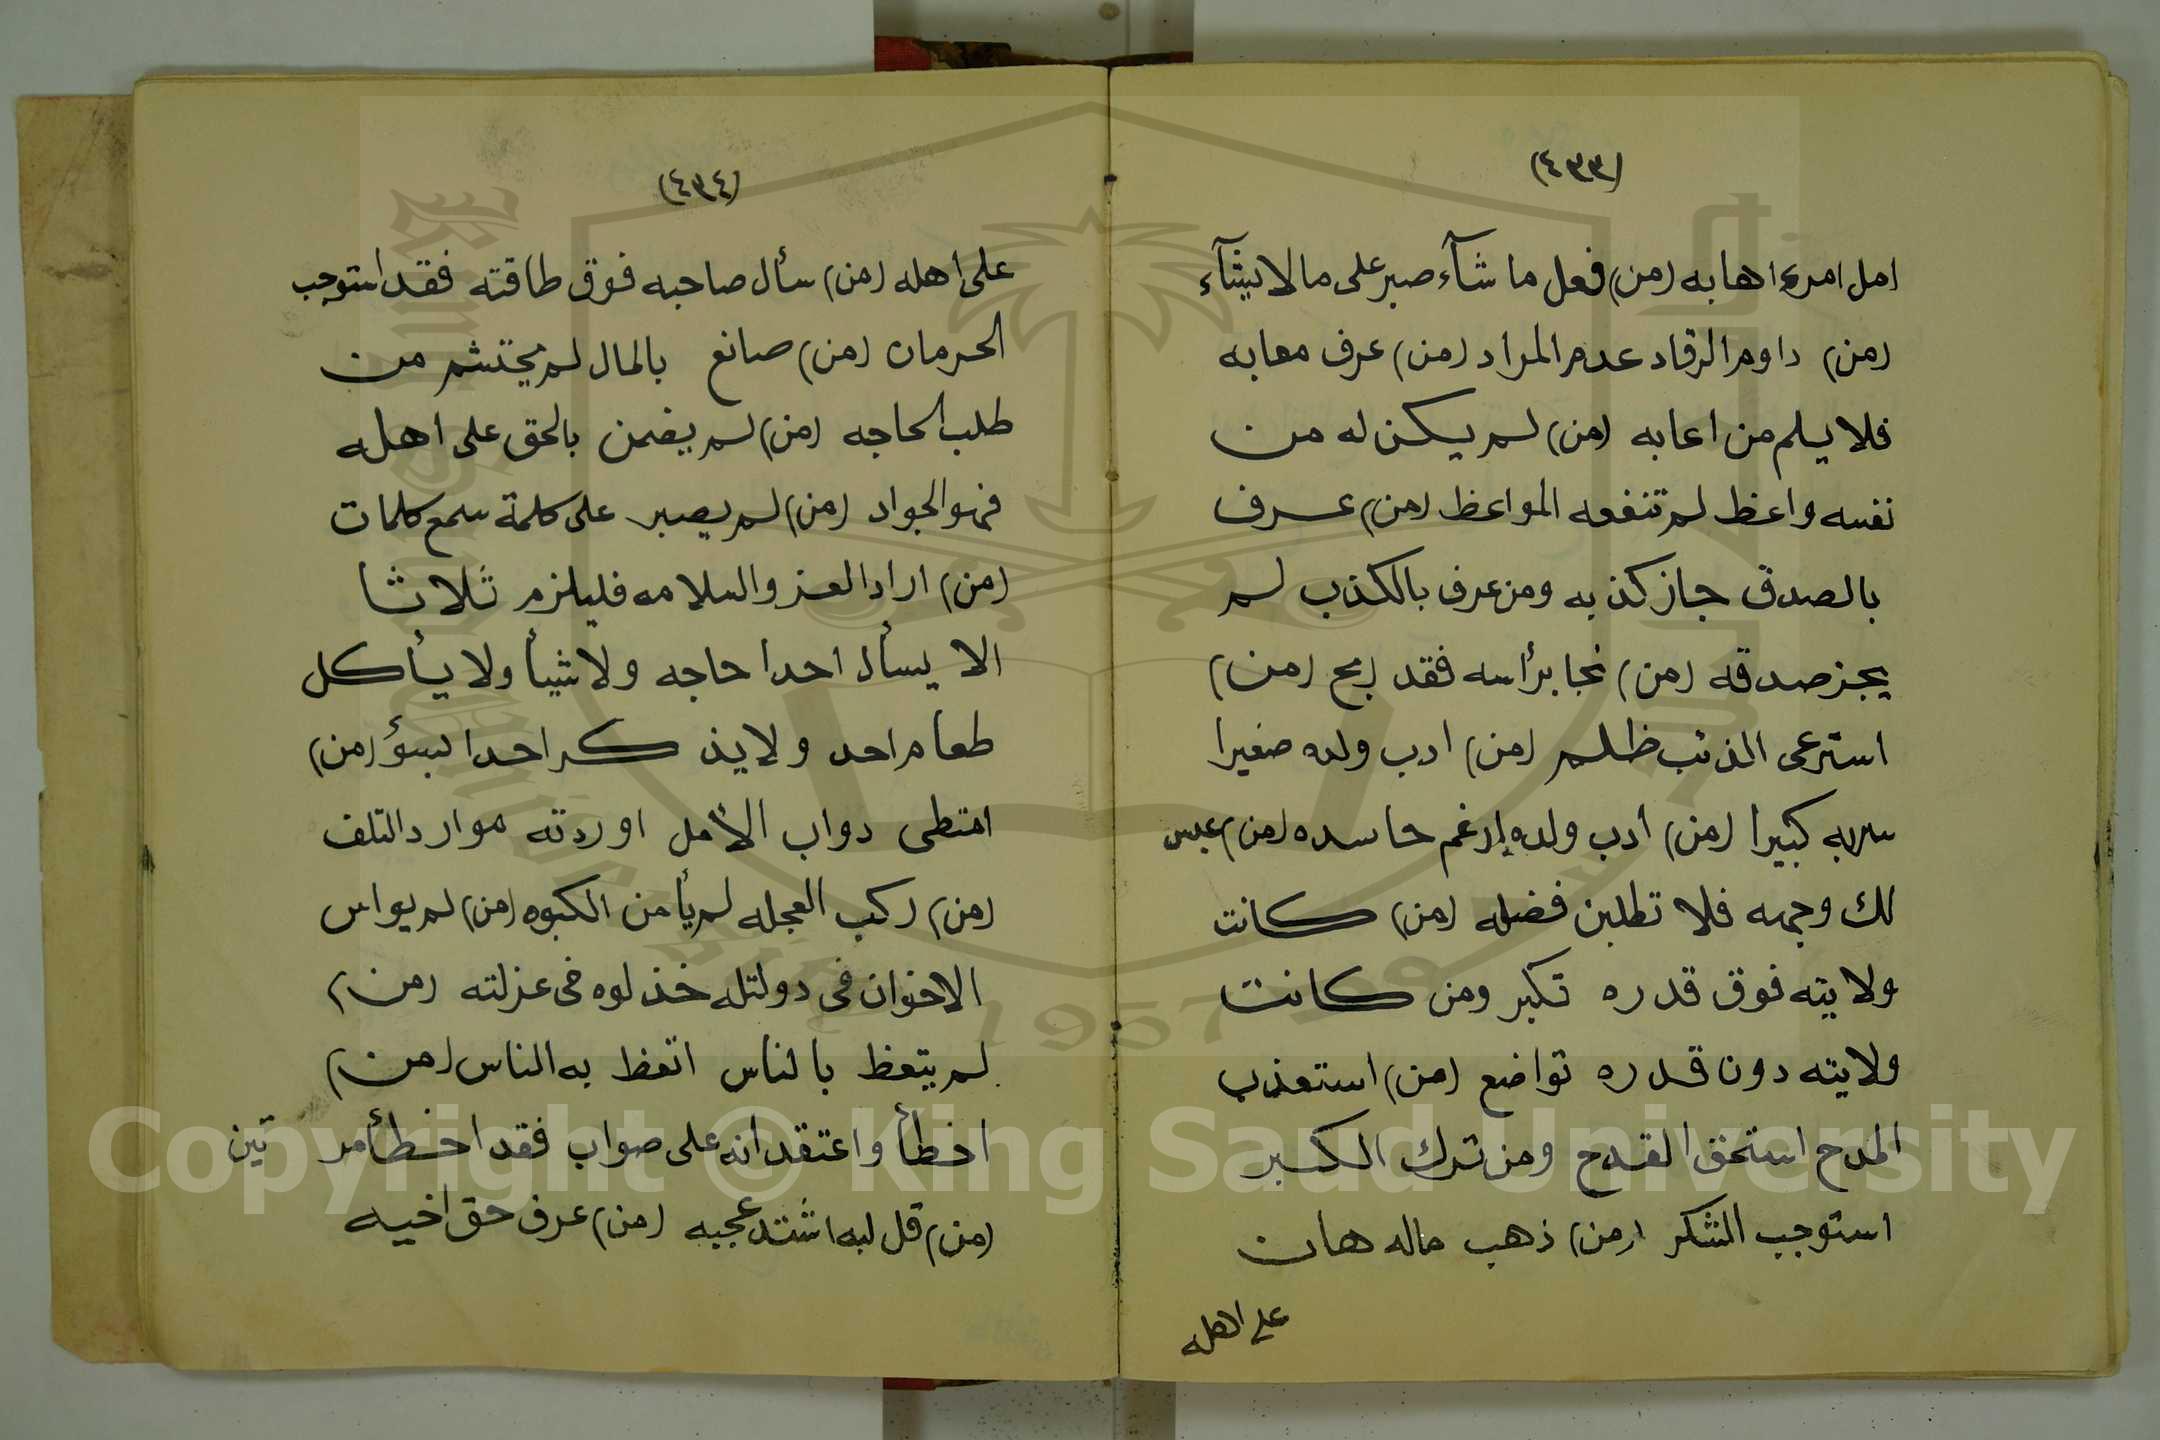 (٤٣٣)
امل امرءا هابه (من) فعل ما شآء صبر على ما لا يشآء
(من) داوم الرقاد عدم المراد (من) عرف معابه
فلا يلم من اعابه (من) لم يكن له من
نفسه واعظ لم تنفعه المواعظ (من) عرف
بالصدق جاز كذبه ومن عرف بالكذب لم
يجز صدقه (من) نجا برأسه فقد ربح (من)
استرعى الذئب ظلم (من) ادب ولده صغيرا
سر به كبيرا (من) ادب ولده ارغم حاسده (من) عبس
لك وجهه فلا تطلبن فضله (من) كانت
ولايته فوق قدره تكبر ومن كانت
ولايته دون قدره تواضع (من) استعذب
المدح استحق القدح ومن ترك الكبر
استوجب الشكر (من) ذهب ماله هان
على اهله
(٤٣٤)
على اهله (من) سأل صاحبه فوق طاقته فقد استوجب
الحرمان (من) صانع بالمال لم يحتشم من
طلب الحاجه (من) لم يضمن بالحق على اهله
فهو الجواد (من) لم يصبر على كلمة سمع كلمات
(من) اراد العز والسلامه فليلزم ثلاثا
الا يسأل احدا حاجه ولا شيأ ولا يأكل
طعام احد ولا يذكر احدا بسؤ (من)
امتطى دواب الأمل اوردته موارد التلف
(من) ركب العجله لم يأمن الكبوه (من) لم يواس
الاخوان فى دولتله خذلوه فى عزلته (من)
لم يتعظ بالناس اتعظ به الناس (من)
اخطأ واعتقد انه على صواب فقد اخطأ مر تين
(من) قل لبه اشتد عجبه (من) عرف حق اخيه
Copyright © King Saud University
1957